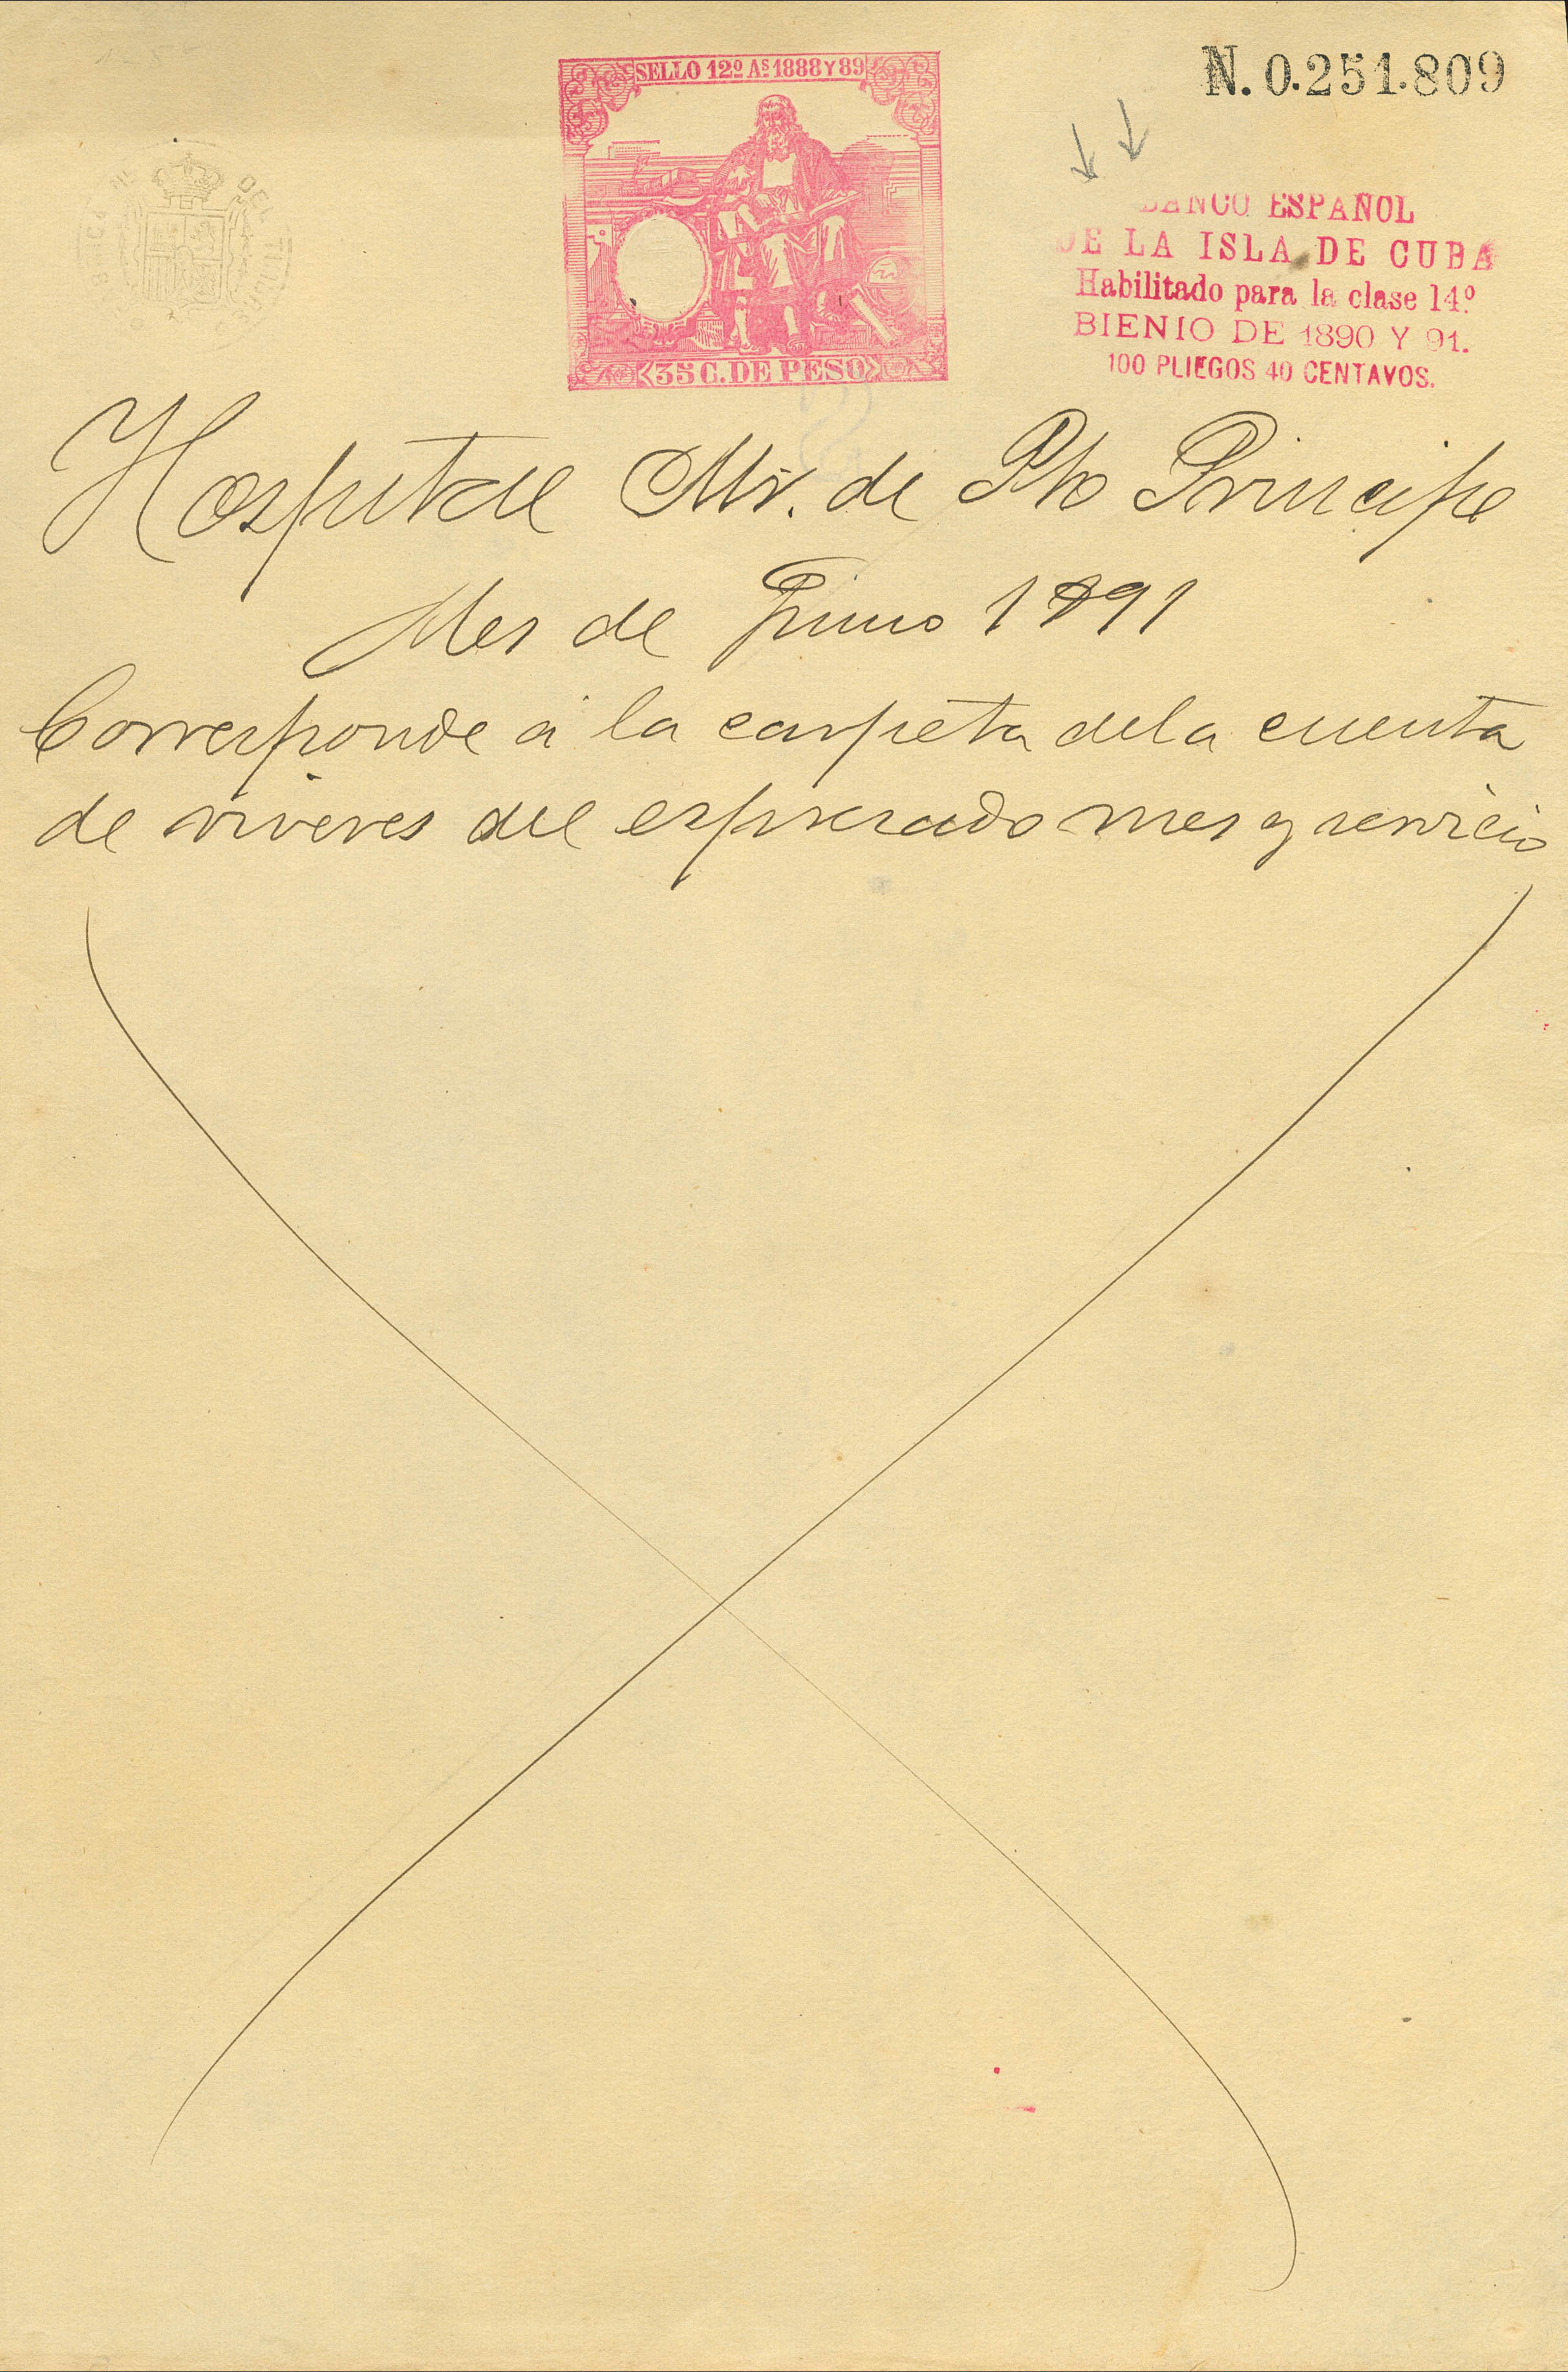 SELLO 12º AS 1888 Y 89
35 C. DE PESO
N. 0.251.809
BANCO ESPAÑOL
DE LA ISLA DE CUBA
Habilitado para la clase 14º
BIENIO DE 1890 Y 91.
100 PLIEGOS 40 CENTAVOS.
Hospital Mir. de Pto Principe
Mes de Junio 1891
Corresponde á la carpeta dela cuenta
de viveres del espresado mes y servicio